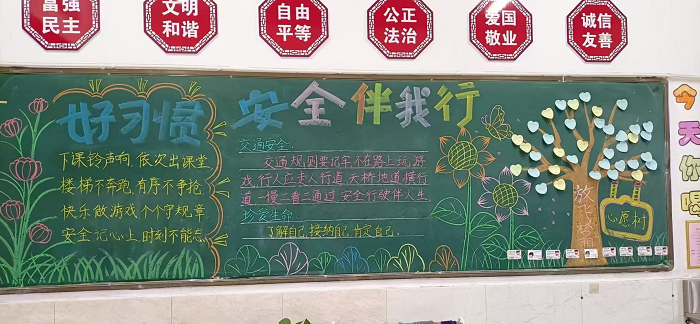 富强
民主
文明
和谐
自由
平等
公正
法治
爱国
敬业
诚信
友善
好习惯
下课铃声响 依次出课堂
楼梯不奔跑 有序不争抢
快乐做游戏 个个守规章
安全记心上 时刻不能忘
安全伴我行
交通安全:
交通规则要记牢 不在路上玩游
戏 行人应走人行道 天桥地道横行
道 一慢二看三通过 安全行驶伴人生
珍爱生命:
了解自己 接纳自己 肯定自己.
放飞梦想
心愿树
今天你喝